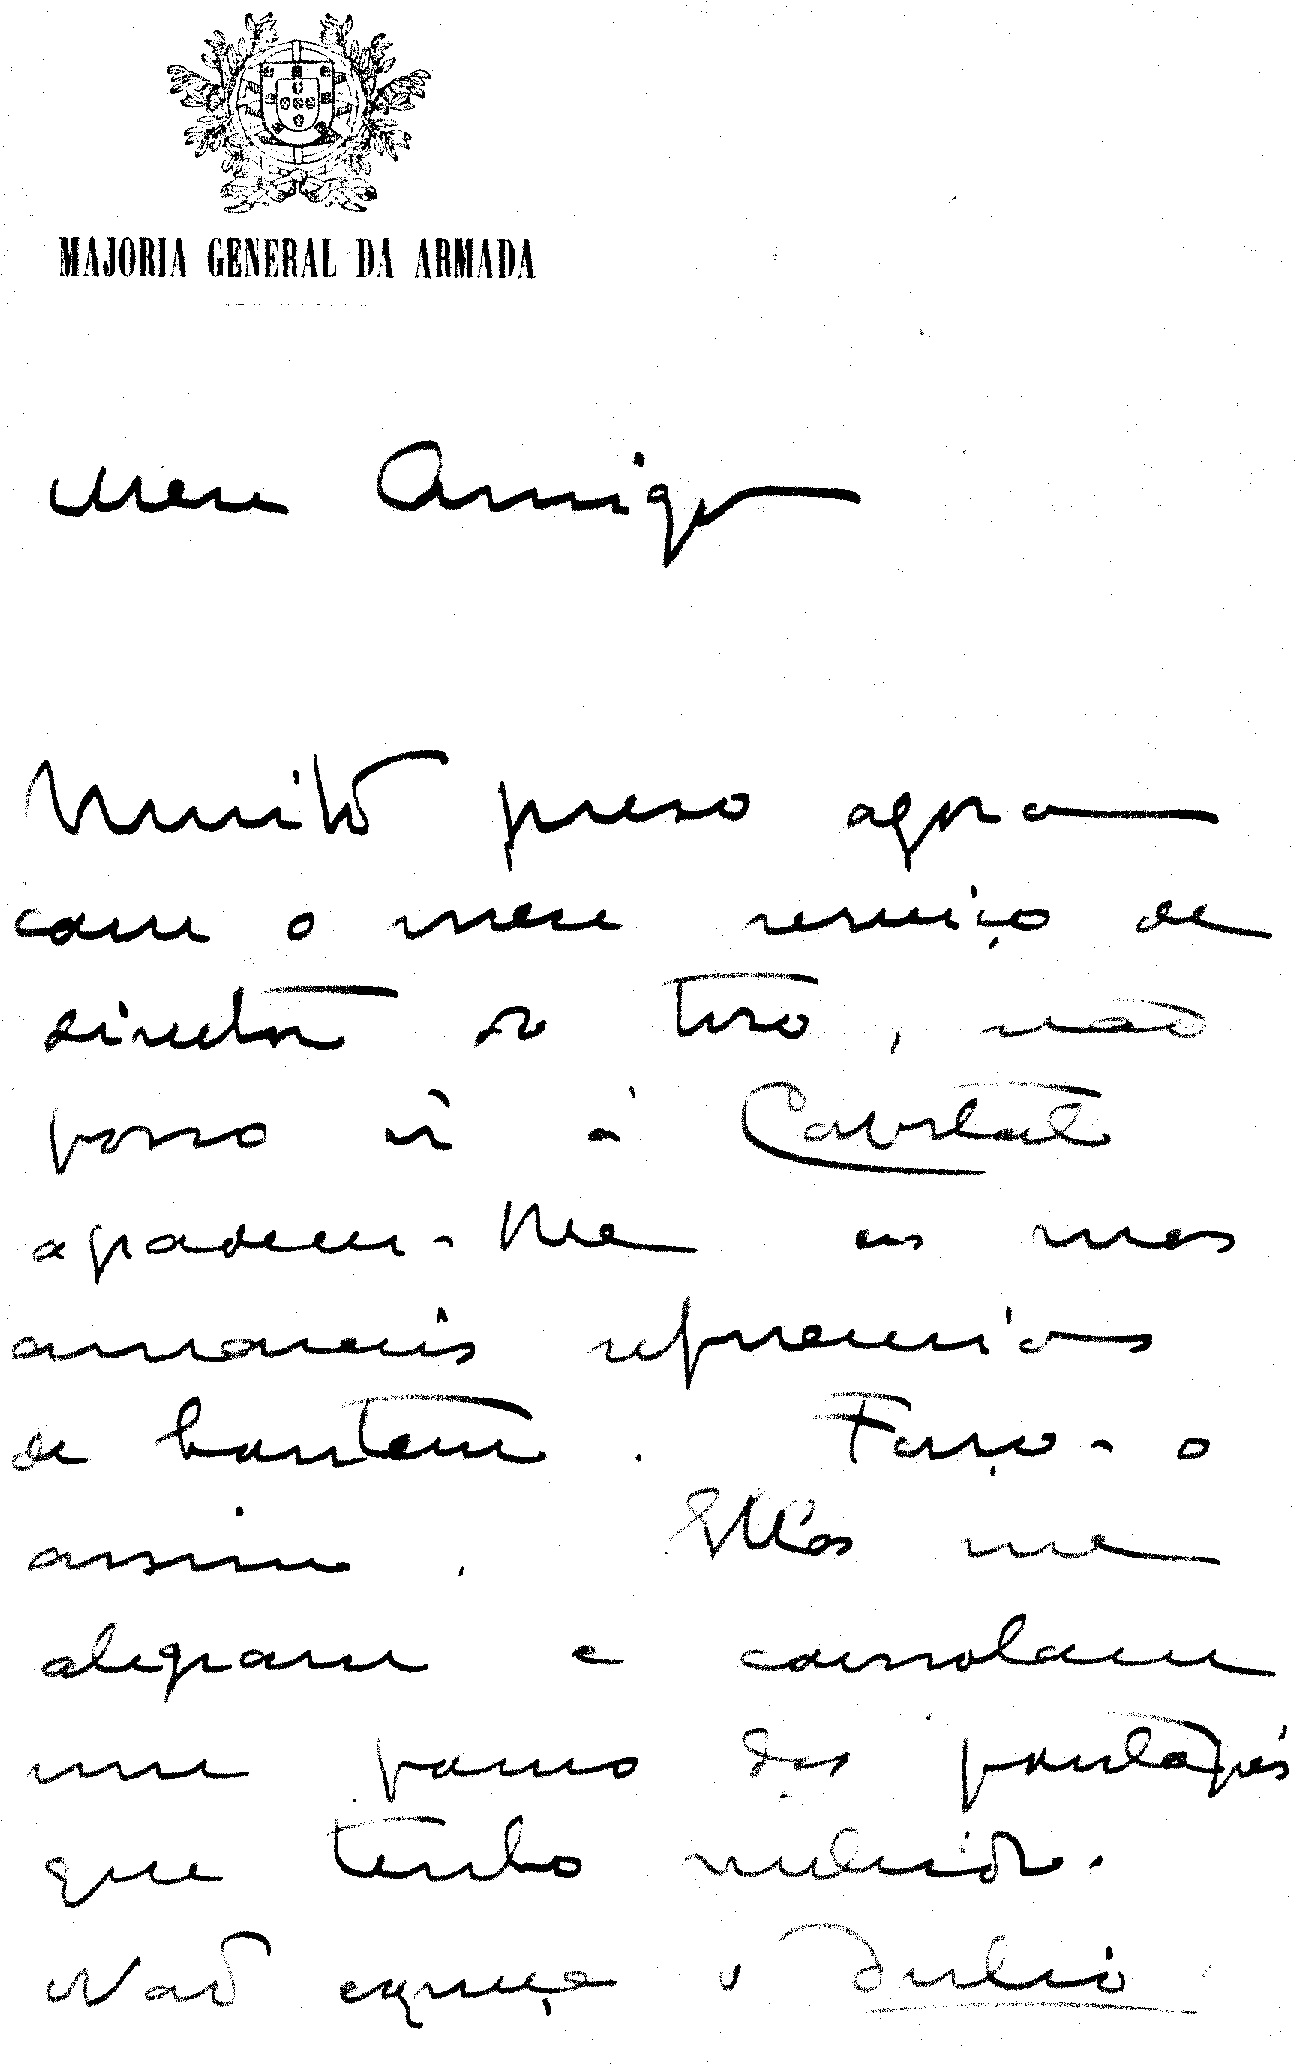 MAJORIA GENERAL DA ARMADA
Meu Amigo
Muito preso agora
com o meu serviço de
director do tiro, não
posso ir à Capital
agradecer-lhe as suas
amaveis referencias
de hontem. Faço-o
assim. Ellas me
alegram e consolam
um pouco dos pontapés
que tenho recebido.
Não esqueça o Julio